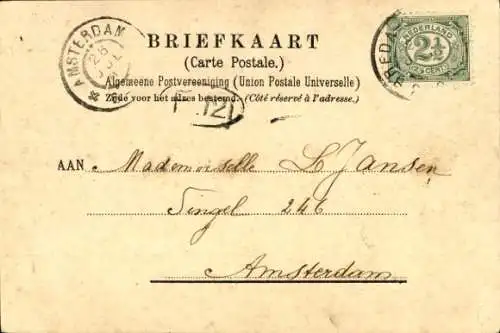 AMSTERDAM
BRIEFKAART
(Carte Postale.)
Algemeene Postvereeniging (Union Postale Universelle)
Zijde voor het adres bestemd. (Côté réservé à l'adresse.)
NEDERLAND
2½
CENT
BREDA
AAN Mademoiselle L Jansen
Singel 246
Amsterdam